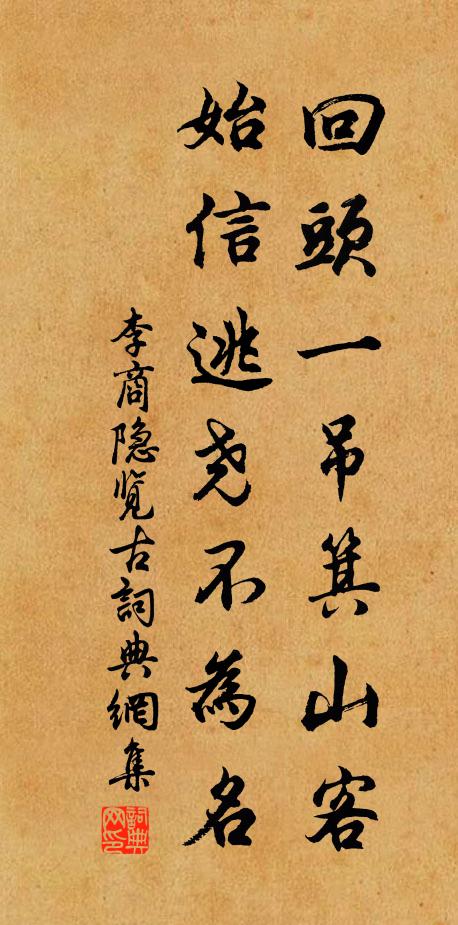 回頭一吊箕山客
始信逃尧不為名
李商隐览古詞典網集
詞典网印